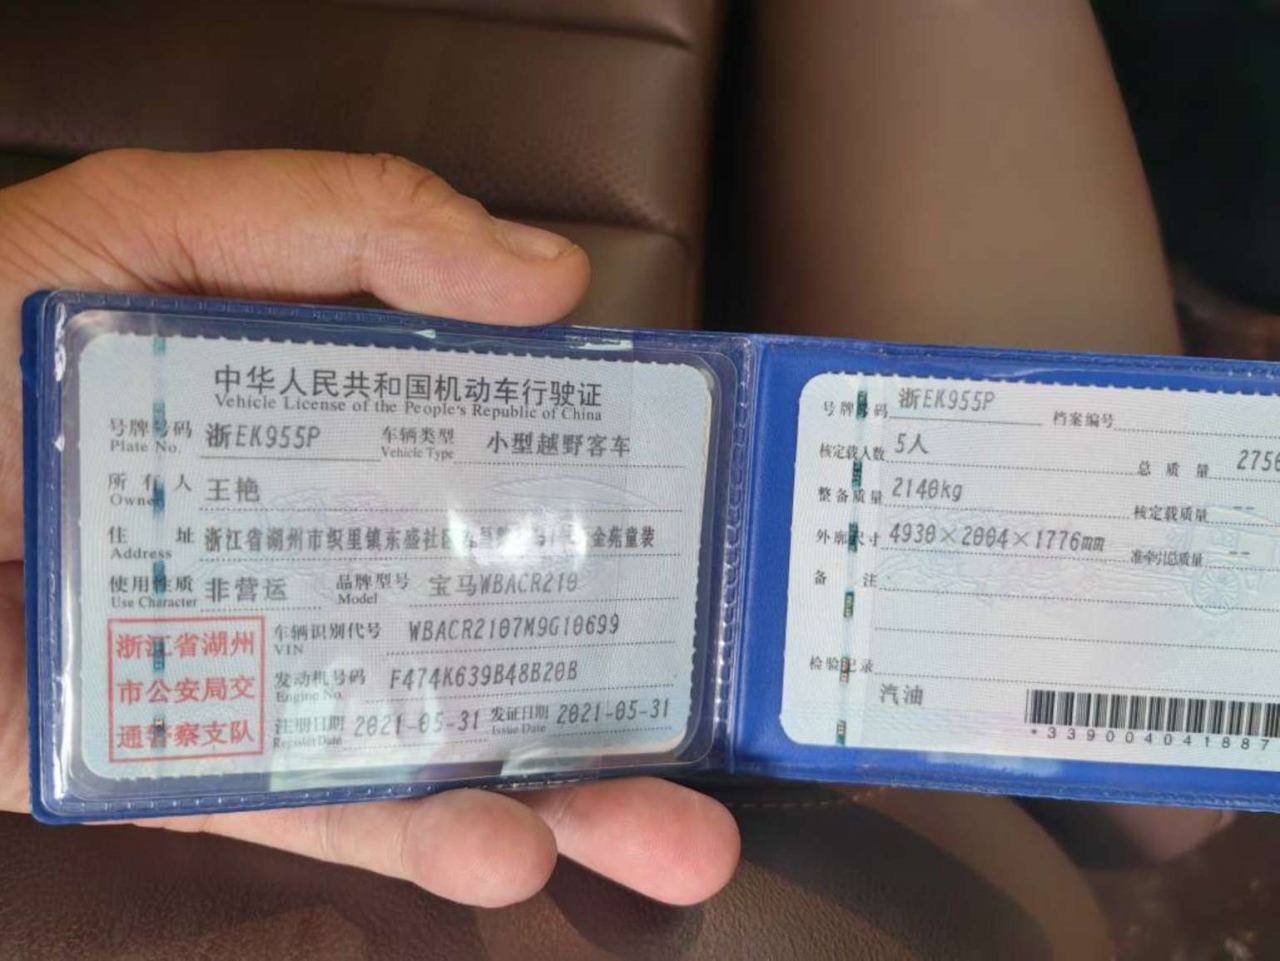 中华人民共和国机动车行驶证
Vehicle License of the People's Republic of China
号牌号码 浙EK955P 车辆类型 小型越野客车
Plate No. Vehicle Type
所有人 王艳
Owner
住址 浙江省湖州市织里镇东盛社区 金苑童装
Address
使用性质 非营运 品牌型号 宝马WBACR210
Use Character Model
浙江省湖州
市公安局交
通警察支队
车辆识别代号 WBACR2107M9G10699
VIN
发动机号码 F474K639B48B20B
Engine No.
注册日期 2021-05-31 发证日期 2021-05-31
Register Date Issue Date
号牌号码 浙EK955P 档案编号
核定载人数 5人 总质量 2756
整备质量 2140kg 核定载质量 --
外廓尺寸 4930×2004×1776mm 准牵引总质量 --
备注
检验记录
汽油
*339004041887